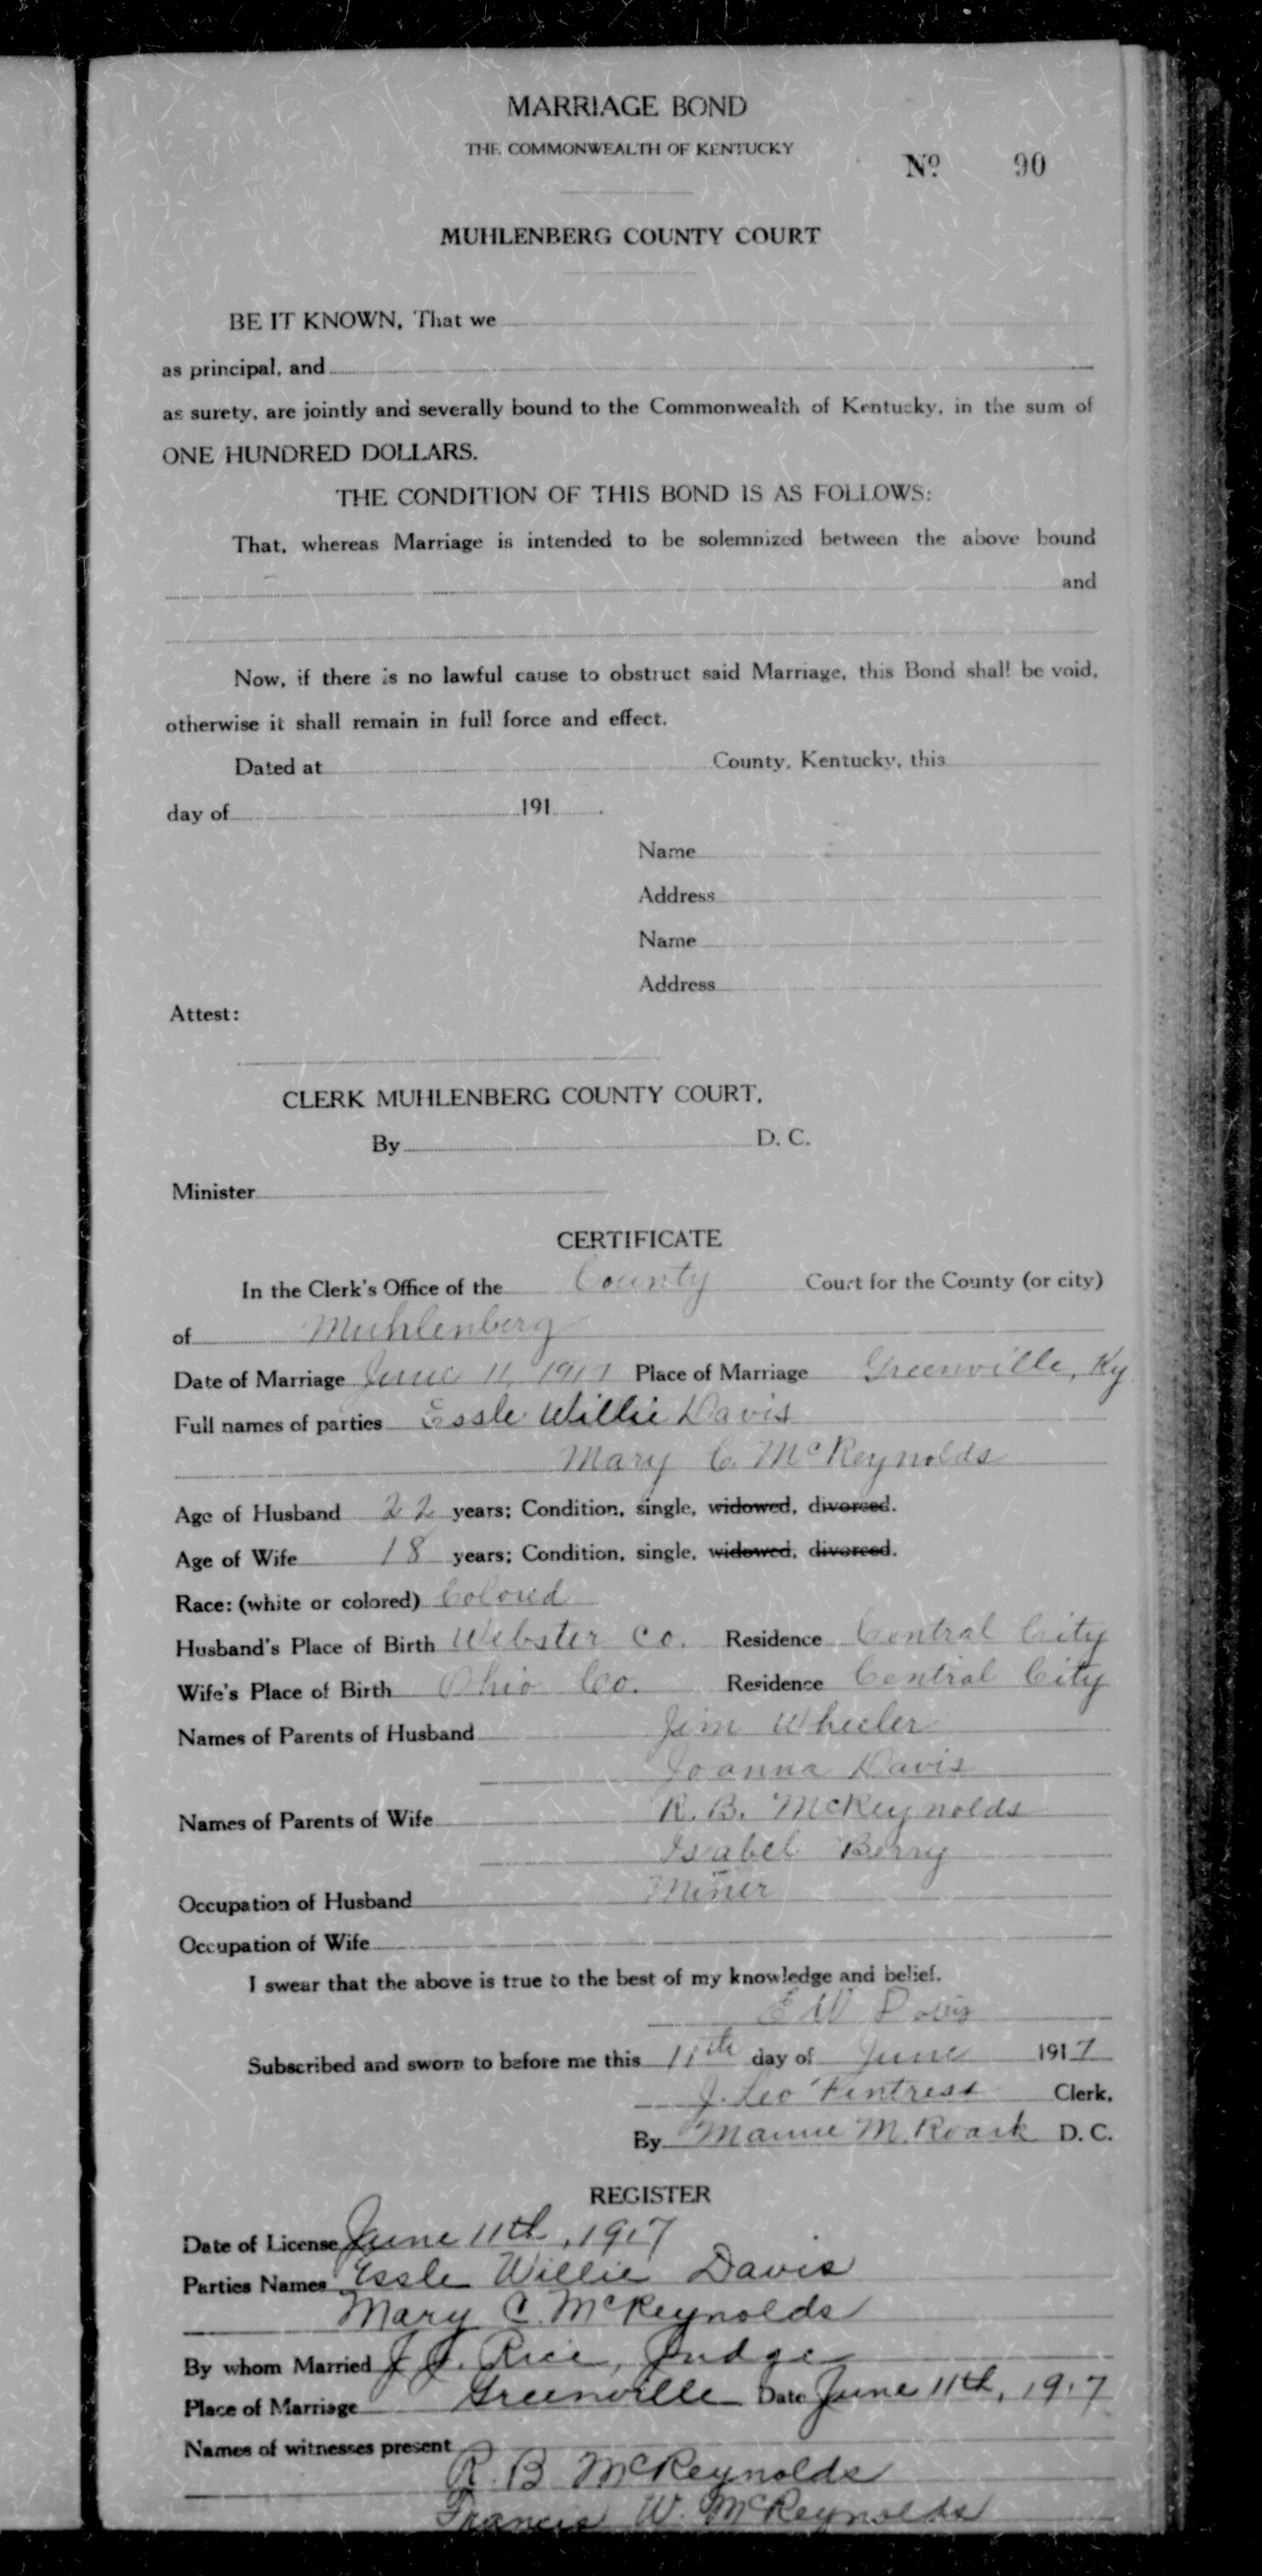 MARRIAGE BOND
THE COMMONWEALTH OF KENTUCKY
No. 90
MUHLENBERG COUNTY COURT
BE IT KNOWN, That we
as principal, and
as surety, are jointly and severally bound to the Commonwealth of Kentucky, in the sum of
ONE HUNDRED DOLLARS.
THE CONDITION OF THIS BOND IS AS FOLLOWS:
That, whereas Marriage is intended to be solemnized between the above bound
and
Now, if there is no lawful cause to obstruct said Marriage, this Bond shall be void,
otherwise it shall remain in full force and effect.
Dated at County, Kentucky, this
day of 191 .
Name
Address
Name
Address
Attest:
CLERK MUHLENBERG COUNTY COURT,
By D. C.
Minister
CERTIFICATE
In the Clerk's Office of the County Court for the County (or city)
of Muhlenberg
Date of Marriage June 11, 1917 Place of Marriage Greenville, Ky
Full names of parties Essle Willie Davis
Mary C. McReynolds
Age of Husband 22 years; Condition, single, widowed, divorced.
Age of Wife 18 years; Condition, single, widowed, divorced.
Race: (white or colored) Colored
Husband's Place of Birth Webster Co. Residence Central City
Wife's Place of Birth Ohio Co. Residence Central City
Names of Parents of Husband Jim Wheeler
Joanna Davis
Names of Parents of Wife R. B. McReynolds
Isabel Berry
Occupation of Husband Miner
Occupation of Wife
I swear that the above is true to the best of my knowledge and belief.
E W Davis
Subscribed and sworn to before me this 11th day of June 1917
J. Leo Fentress Clerk.
By Mamie M. Roark D. C.
REGISTER
Date of License June 11th, 1917
Parties Names Essle Willie Davis
Mary C. McReynolds
By whom Married J. J. Rice, Judge
Place of Marriage Greenville Date June 11th, 1917
Names of witnesses present
R. B McReynolds
Francis W. McReynolds